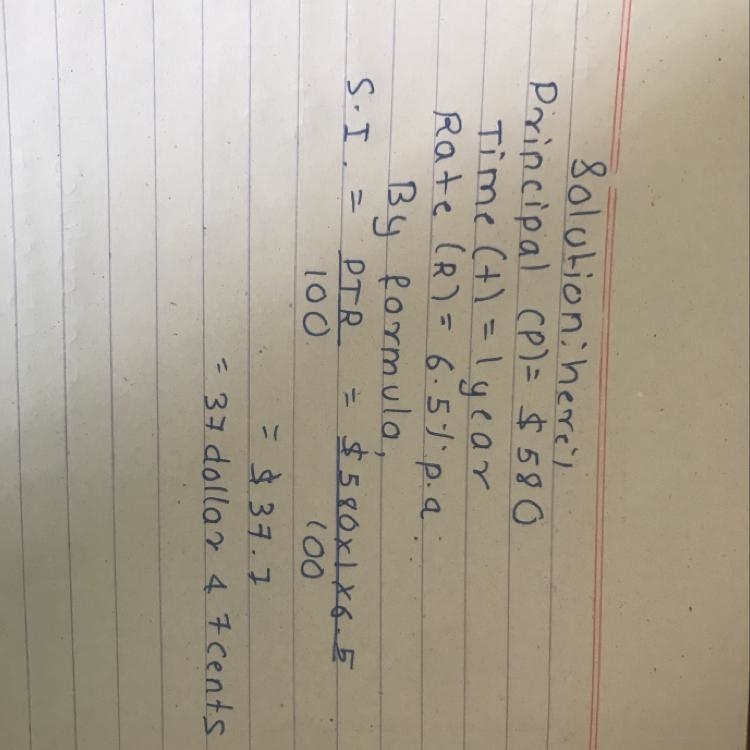 Solution: here,
Principal (P) = $580
Time (t) = 1 year
Rate (R) = 6.5% p.a
By formula,
S.I. = PTR/100 = $580x1x6.5/100
= $37.7
= 37 dollar 4 7 cents